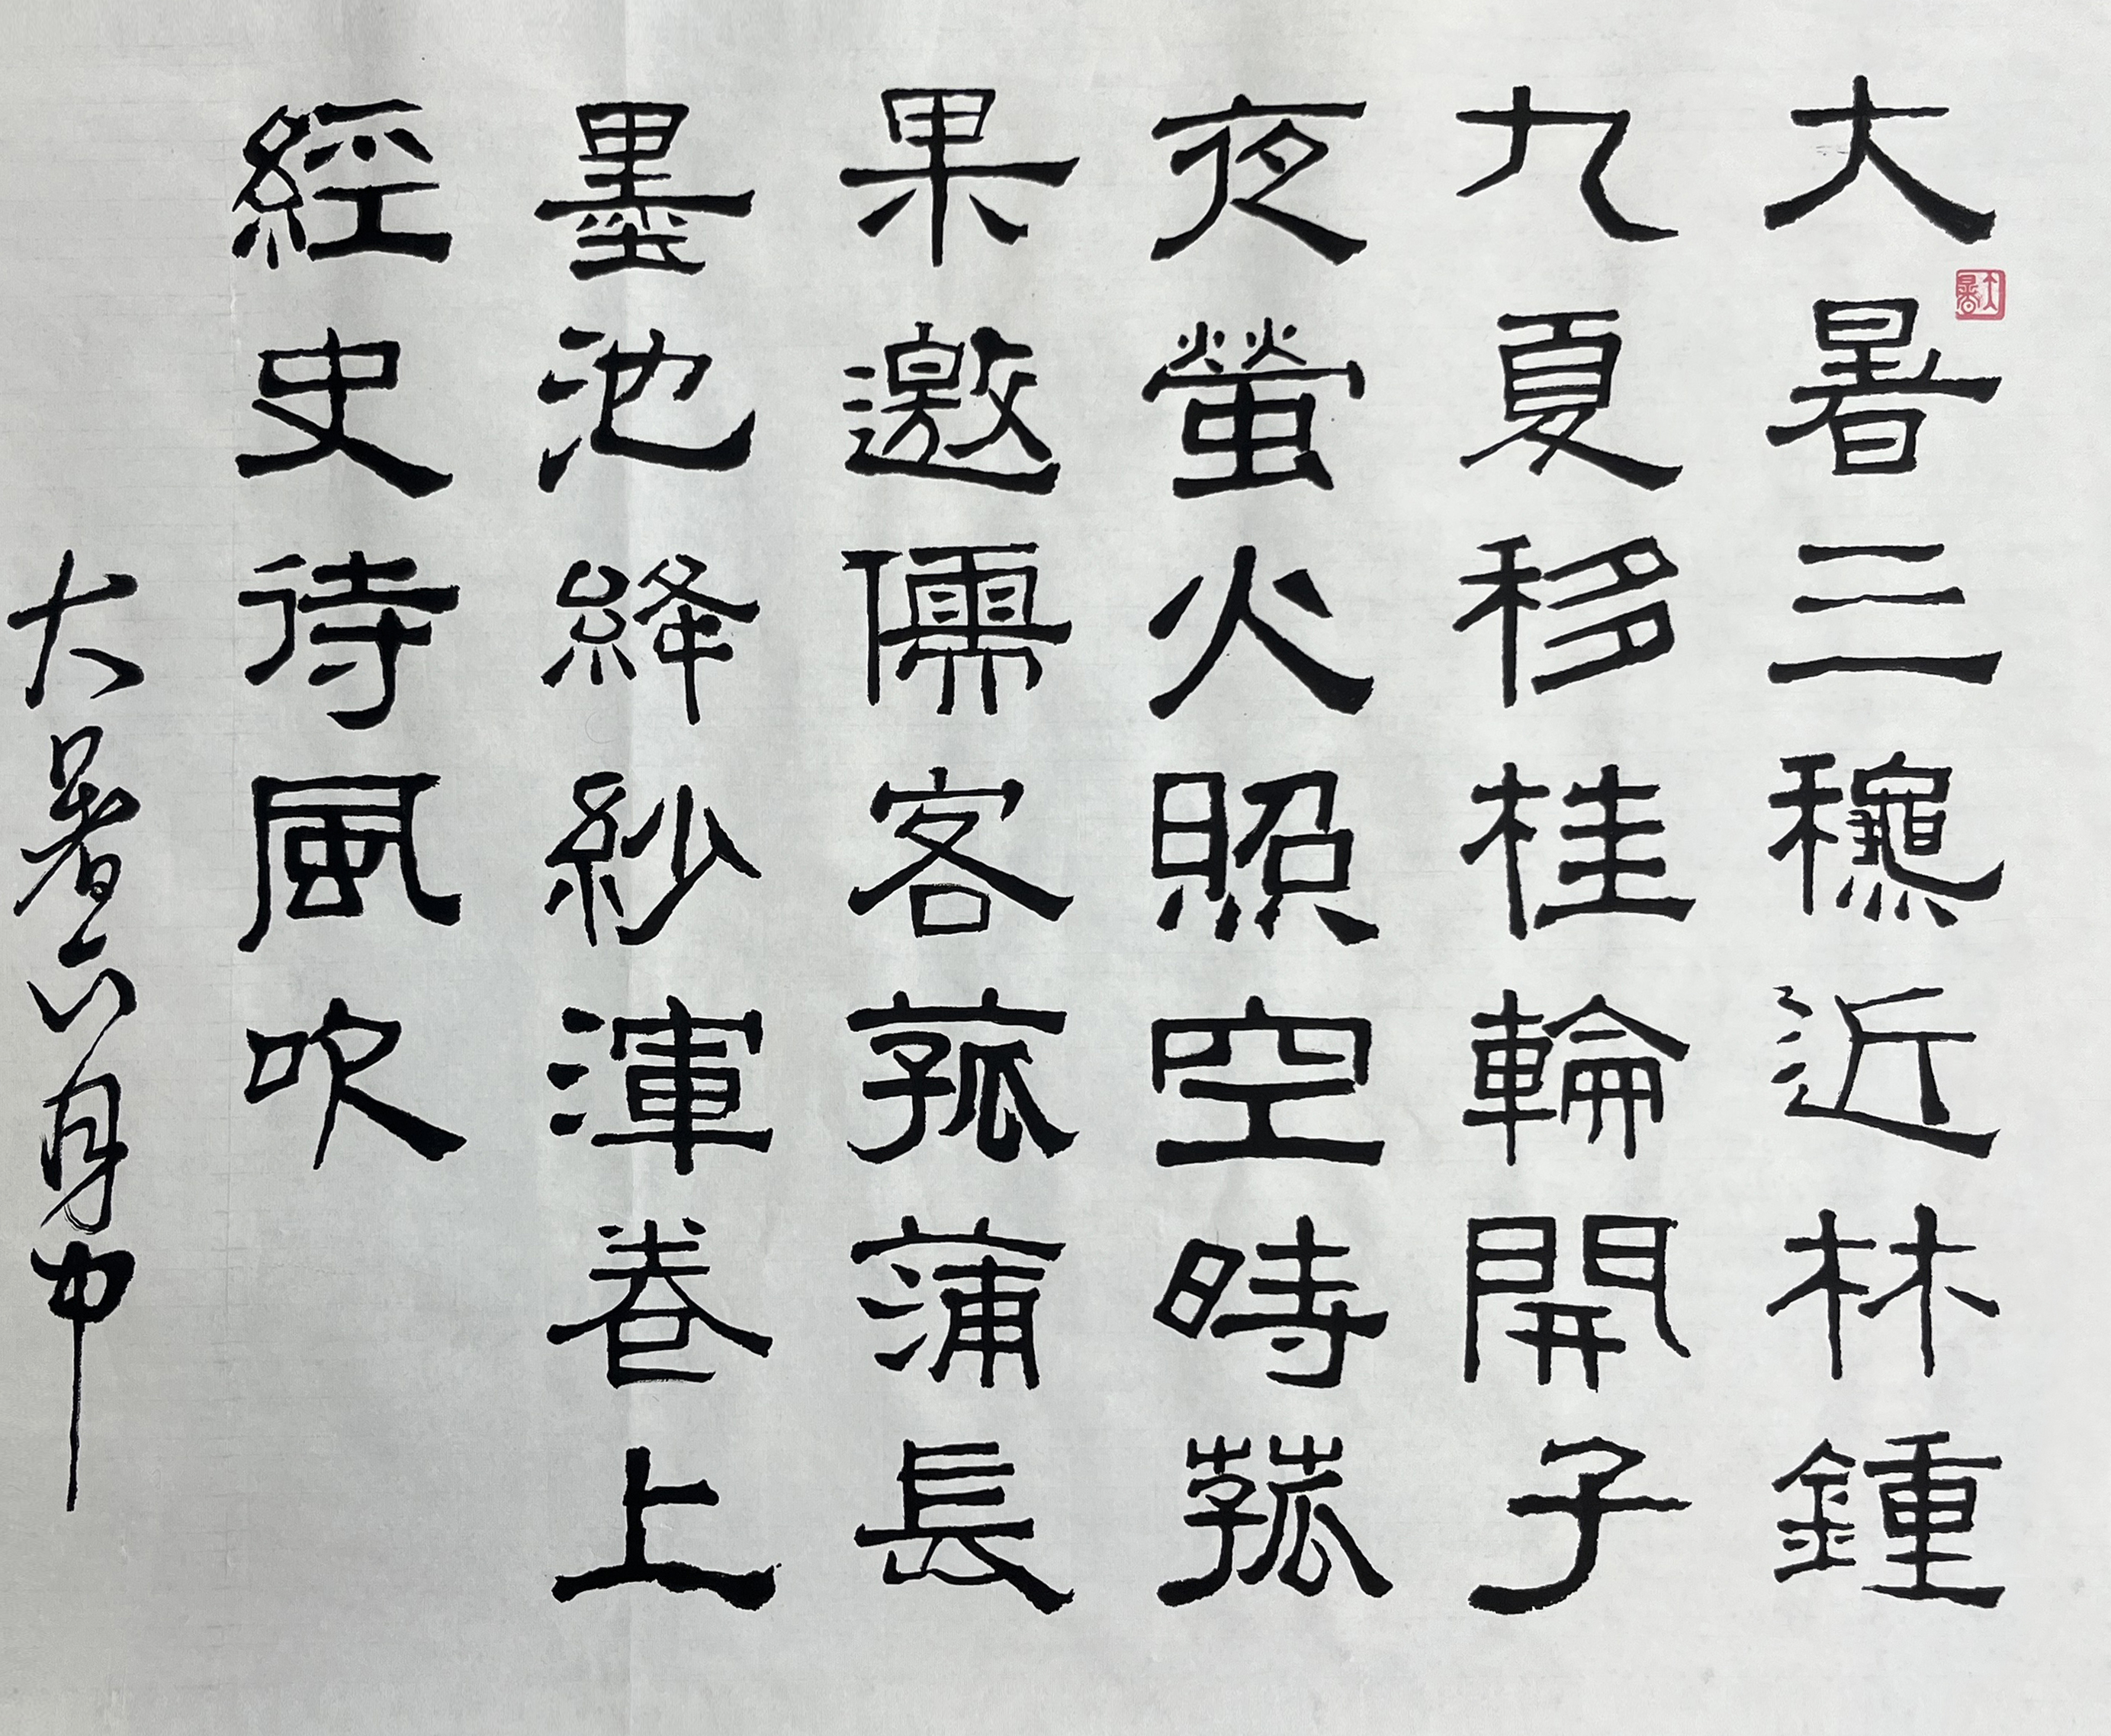 大暑三龝近林鍾
九夏移桂輪開子
夜螢火照空時菰
果邀儒客菰蒲長
墨池絳紗渾卷上
經史待風吹
大暑六月中
大暑